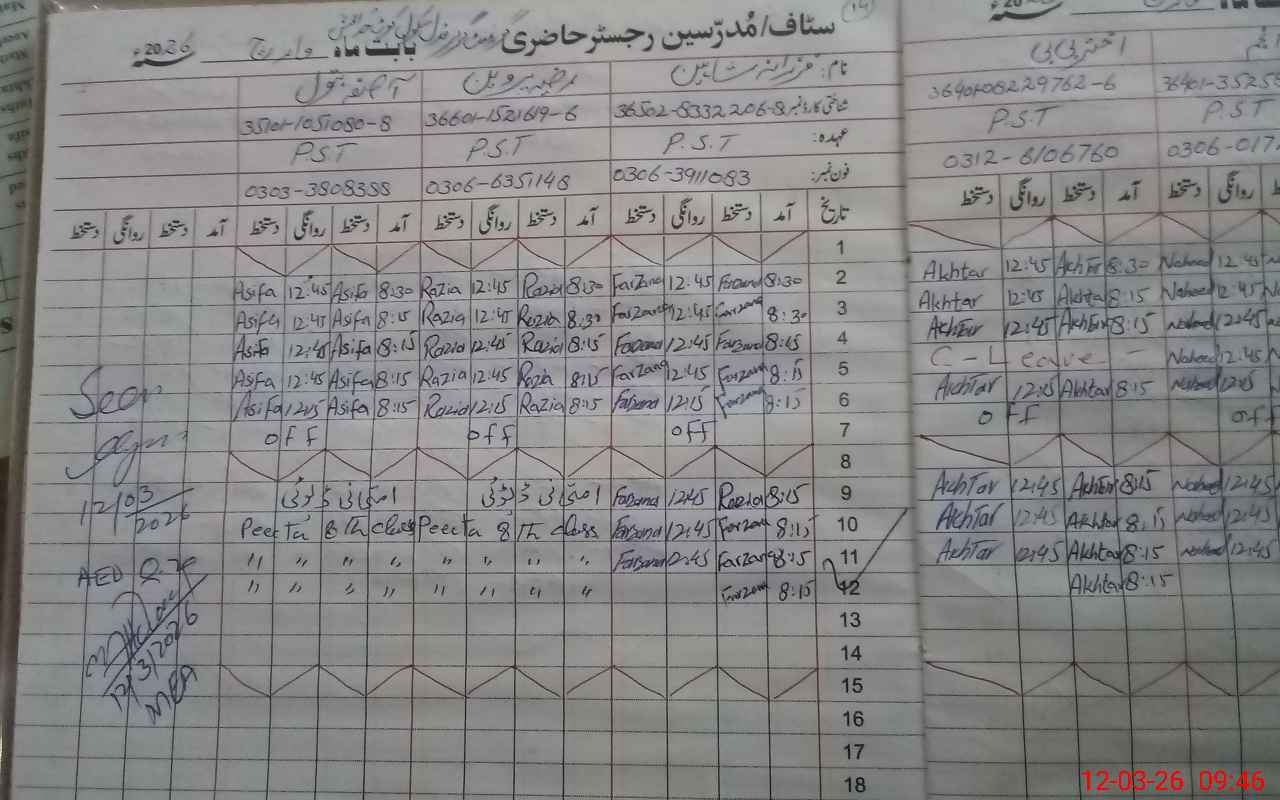 سٹاف/مُدرّسین رجسٹر حاضری بابت ماہ مارچ 2026ء
نام: فرزانہ شاہین رضیہ پروین آصفہ بتول
شناختی کارڈ نمبر 36502-8332206-8 36601-1521619-6 35101-1051080-8
عہدہ: P.S.T P.S.T P.S.T
فون نمبر: 0306-3911083 0306-6351148 0303-3808388
تاریخ آمد دستخط روانگی دستخط آمد دستخط روانگی دستخط آمد دستخط روانگی دستخط آمد دستخط روانگی دستخط
1
Asifa 12:45 Asifa 8:30 Razia 12:45 Razia 8:30 Farzana 12:45 Farzana 8:30 2
Asifa 12:45 Asifa 8:15 Razia 12:45 Razia 8:30 Farzana 12:45 Farzana 8:30 3
Asifa 12:45 Asifa 8:15 Razia 12:45 Razia 8:15 Farzana 12:45 Farzana 8:15 4
Asifa 12:45 Asifa 8:15 Razia 12:45 Razia 8:15 Farzana 12:45 Farzana 8:15 5
Asifa 12:15 Asifa 8:15 Razia 12:15 Razia 8:15 Farzana 12:15 Farzana 8:15 6
off off off 7
8
امتحانی ڈیوٹی امتحانی ڈیوٹی Farzana 12:45 Razia 8:15 9
Peecta 8th class Peecta 8th class Farzana 12:45 Farzana 8:15 10
" " " " " " " " Farzana 12:45 Farzana 8:15 11
" " " " " " " " Farzana 8:15 12
13
14
15
16
17
18
Seen
12/03/2026
AEO
12/3/2026
MEA
اختر بی بی
36401-08229762-6 36401-3525
P.S.T P.S.T
0312-6106760 0306-017
آمد دستخط روانگی دستخط
Akhtar 12:45 Akhtar 8:30 Naheed 12:45
Akhtar 12:45 Akhtar 8:15 Naheed 12:45
Akhtar 12:45 Akhtar 8:15 Naheed 12:45
C-Leave - Naheed 12:45
Akhtar 12:15 Akhtar 8:15 Naheed 12:15
off off
Akhtar 12:45 Akhtar 8:15 Naheed 12:45
Akhtar 12:45 Akhtar 8:15 Naheed 12:45
Akhtar 12:45 Akhtar 8:15 Naheed 12:45
Akhtar 8:15
12-03-26 09:46